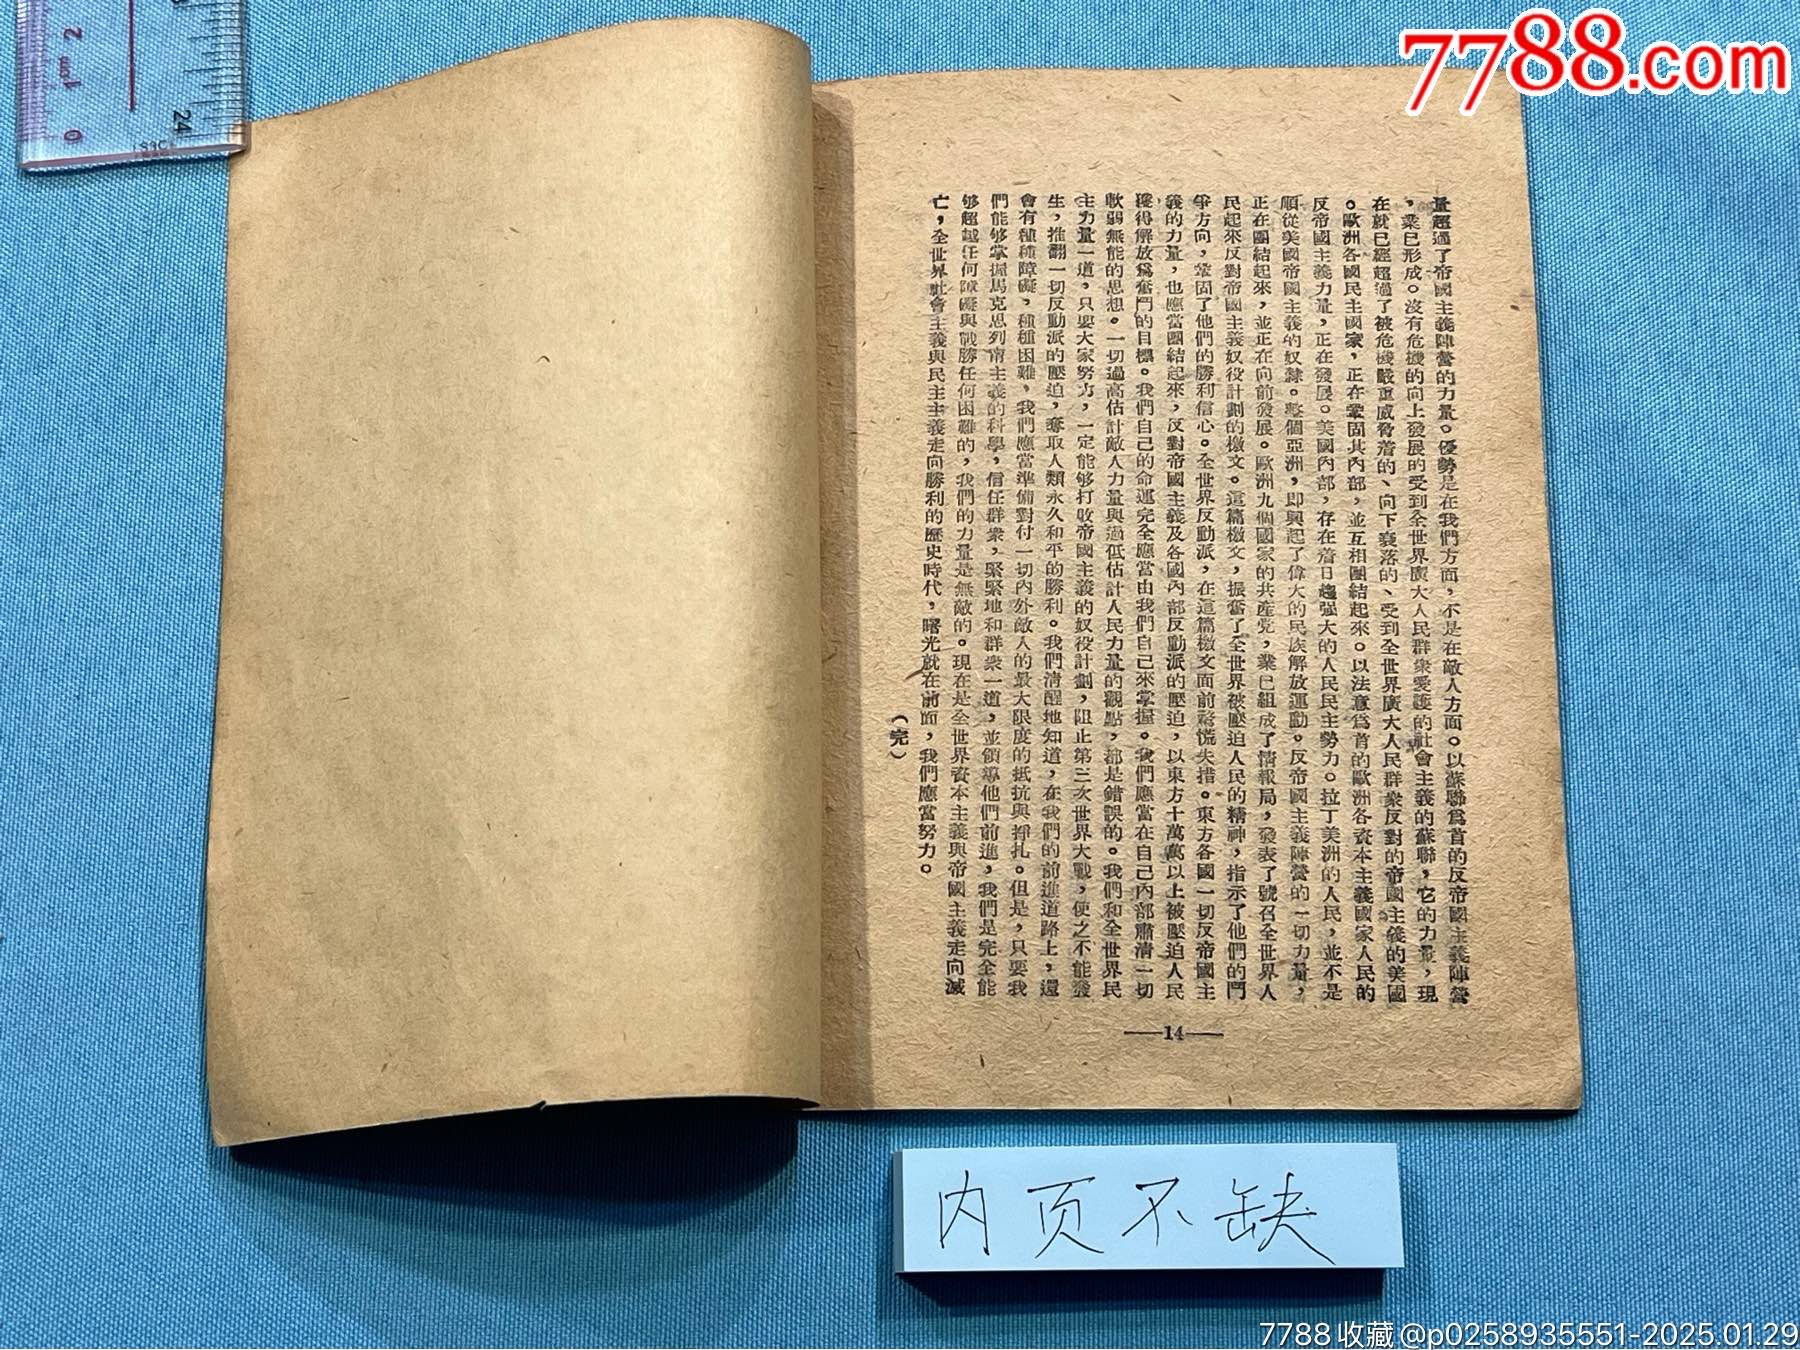 7788.com
0 1 cm 2
24
量超過了帝國主義陣營的力量。優勢是在我們方面，不是在敵人方面。以蘇聯爲首的反帝國主義陣營
，業已形成。沒有危機的向上發展的受到全世界廣大人民群衆愛護的社會主義的蘇聯，它的力量，現
在就已經超過了被危機嚴重威脅着的、向下衰落的、受到全世界廣大人民群衆反對的帝國主義的美國
。歐洲各國民主國家，正在鞏固其內部，並互相團結起來。以法意爲首的歐洲各資本主義國家人民的
反帝國主義力量，正在發展。美國內部，存在着日趨强大的人民民主勢力。拉丁美洲的人民，並不是
順從美國帝國主義的奴隸。整個亞洲，即興起了偉大的民族解放運動。反帝國主義陣營的一切力量，
正在團結起來，並正在向前發展。歐洲九個國家的共產党，業已組成了情報局，發表了號召全世界人
民起來反對帝國主義奴役計劃的檄文。這篇檄文，振奮了全世界被壓迫人民的精神，指示了他們的鬥
爭方向，鞏固了他們的勝利信心。全世界反動派，在這篇檄文面前驚慌失措。東方各國一切反帝國主
義的力量，也應當團結起來，反對帝國主義及各國內部反動派的壓迫，以東方十萬萬以上被壓迫人民
獲得解放爲奮鬥的目標。我們自己的命運完全應當由我們自己來掌握。我們應當在自己內部肅清一切
軟弱無能的思想。一切過高估計敵人力量與過低估計人民力量的觀點，都是錯誤的。我們和全世界民
主力量一道，只要大家努力，一定能够打敗帝國主義的奴役計劃，阻止第三次世界大戰，使之不能發
生，推翻一切反動派的壓迫，奪取人類永久和平的勝利。我們清醒地知道，在我們的前進道路上，還
會有種種障礙，種種困難，我們應當準備對付一切內外敵人的最大限度的抵抗與掙扎。但是，只要我
們能够掌握馬克思列甯主義的科學，信任群衆，緊緊地和群衆一道，並領導他們前進，我們是完全能
够超越任何障礙與戰勝任何困難的，我們的力量是無敵的。現在是全世界資本主義與帝國主義走向滅
亡，全世界社會主義與民主主義走向勝利的歷史時代，曙光就在前面，我們應當努力。
（完）
—14—
内页不缺
7788收藏@p0258935551-2025.01.29